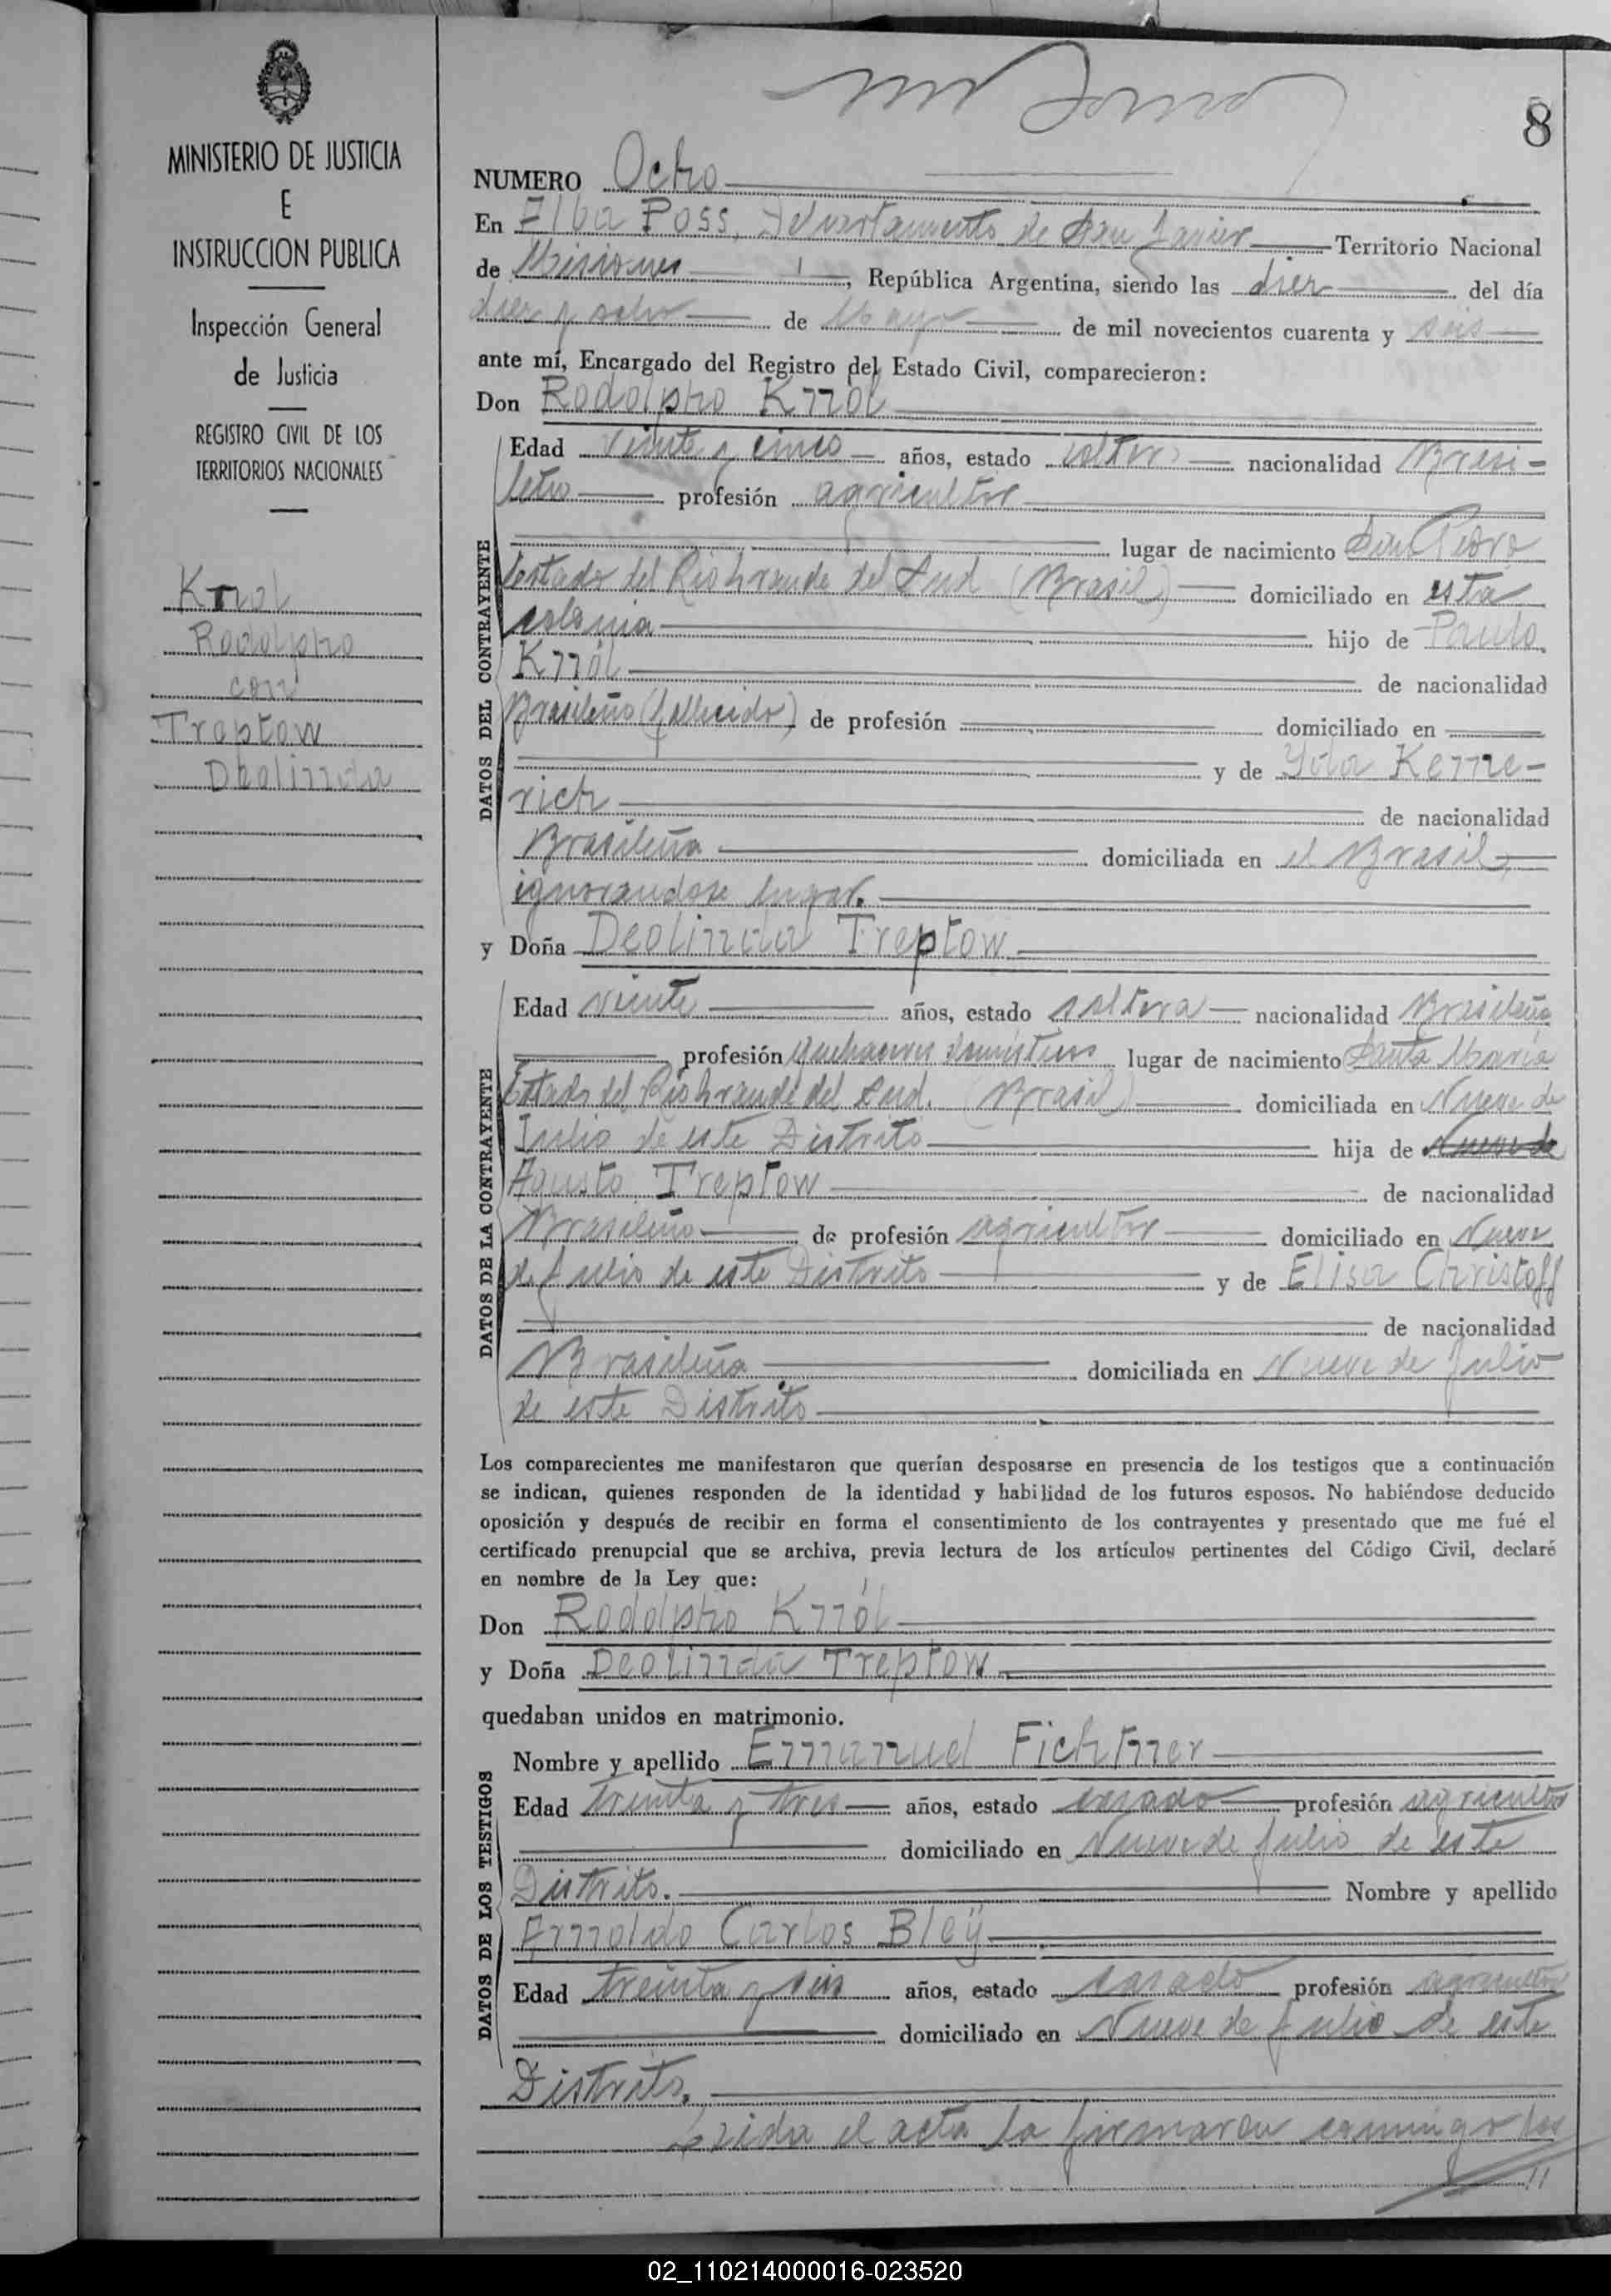 8
MINISTERIO DE JUSTICIA
E
INSTRUCCION PUBLICA
Inspección General
de Justicia
REGISTRO CIVIL DE LOS
TERRITORIOS NACIONALES
Krról
Rodolpho
con
Treptow
Deolinda
NUMERO Ocho
En Alba Poss, Departamento de San Javier Territorio Nacional
de Misiones, República Argentina, siendo las diez del día
diez y ocho de Mayo de mil novecientos cuarenta y seis
ante mí, Encargado del Registro del Estado Civil, comparecieron:
Don Rodolpho Krról
DATOS DEL CONTRAYENTE
Edad veinte y cinco años, estado soltero nacionalidad Brasi-
leño profesión agricultor
lugar de nacimiento San Pedro
Estado del Rio Grande del Sud (Brasil) domiciliado en esta
colonia hijo de Paulo
Krról de nacionalidad
Brasileño (fallecido) de profesión domiciliado en
y de Kerne-
rich de nacionalidad
Brasileña domiciliada en el Brasil,
ignorandose lugar.
y Doña Deolinda Treptow
DATOS DE LA CONTRAYENTE
Edad veinte años, estado soltera nacionalidad Brasileña
profesión quehaceres domésticos lugar de nacimiento Santa Maria
Estado del Rio Grande del Sud. (Brasil) domiciliada en Nueve de
Julio de este Distrito hija de Nueve de
Agusto Treptow de nacionalidad
Brasileño de profesión agricultor domiciliado en Nueve
de Julio de este Distrito y de Elisa Christoff
de nacionalidad
Brasileña domiciliada en Nueve de Julio
de este Distrito
Los comparecientes me manifestaron que querían desposarse en presencia de los testigos que a continuación
se indican, quienes responden de la identidad y habilidad de los futuros esposos. No habiéndose deducido
oposición y después de recibir en forma el consentimiento de los contrayentes y presentado que me fué el
certificado prenupcial que se archiva, previa lectura de los artículos pertinentes del Código Civil, declaré
en nombre de la Ley que:
Don Rodolpho Krról
y Doña Deolinda Treptow
quedaban unidos en matrimonio.
DATOS DE LOS TESTIGOS
Nombre y apellido Emanuel Fichtner
Edad treinta y tres años, estado casado profesión agricultor
domiciliado en Nueve de Julio de este
Distrito. Nombre y apellido
Arnoldo Carlos Bleÿ
Edad treinta y seis años, estado casado profesión agricultor
domiciliado en Nueve de Julio de este
Distrito.
Leida el acta la firmaron conmigo los
//
02_110214000016-023520